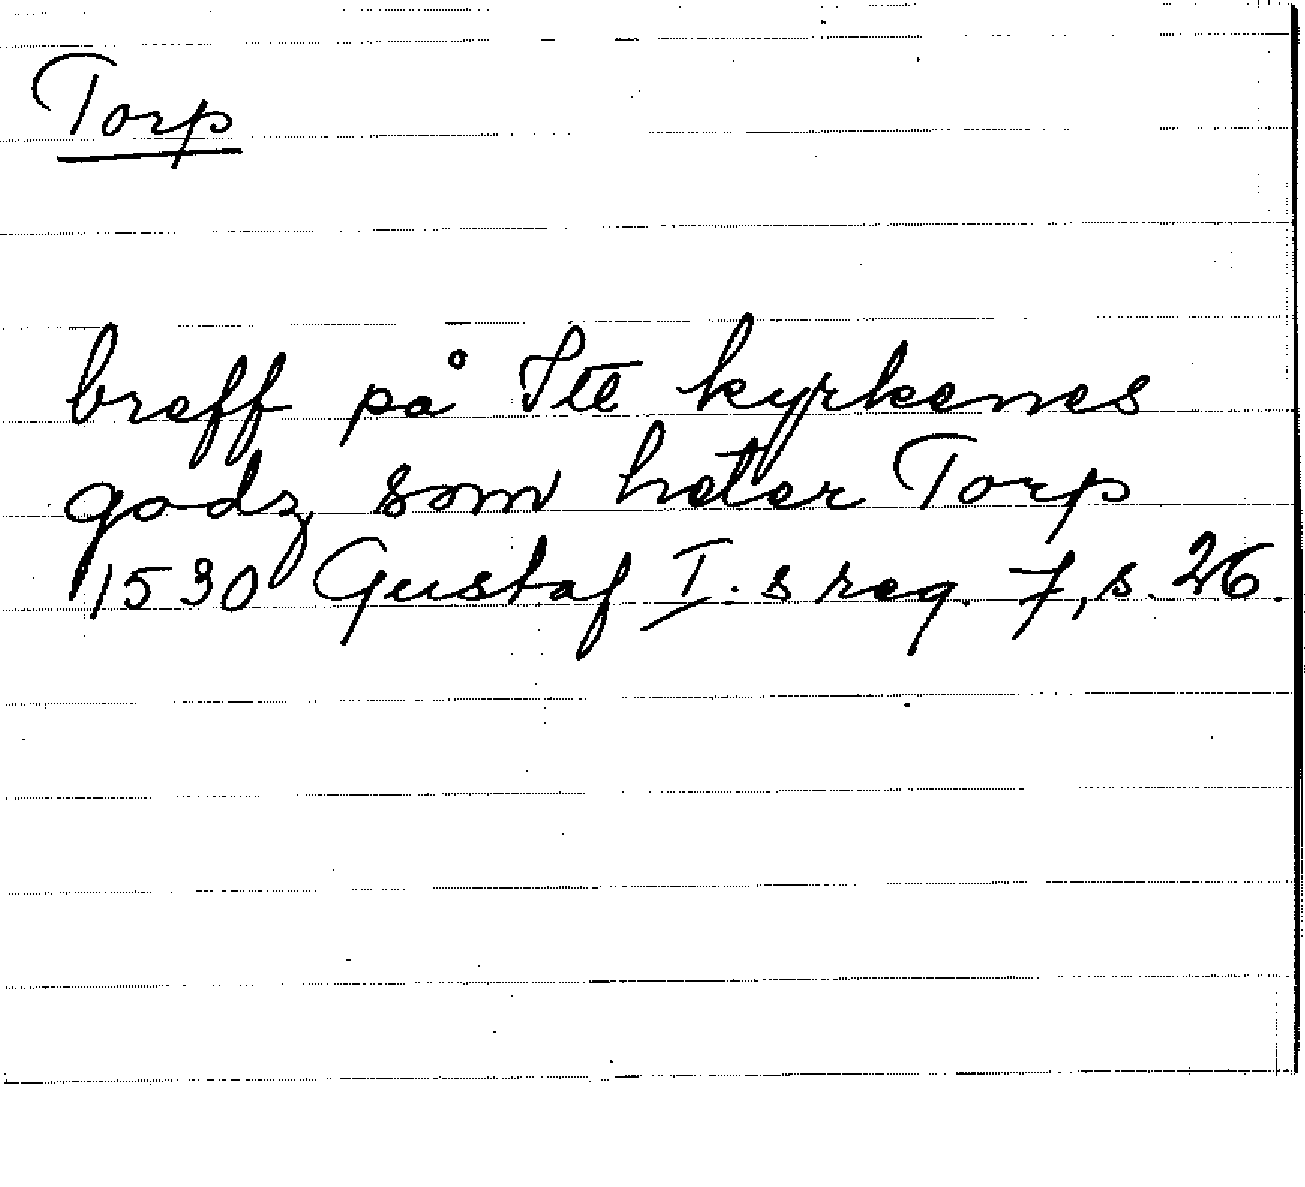 Torp
breff på Ite kyrkenes
godz som heter Torp
1530 Gustaf I.s reg. 7, s. 26.